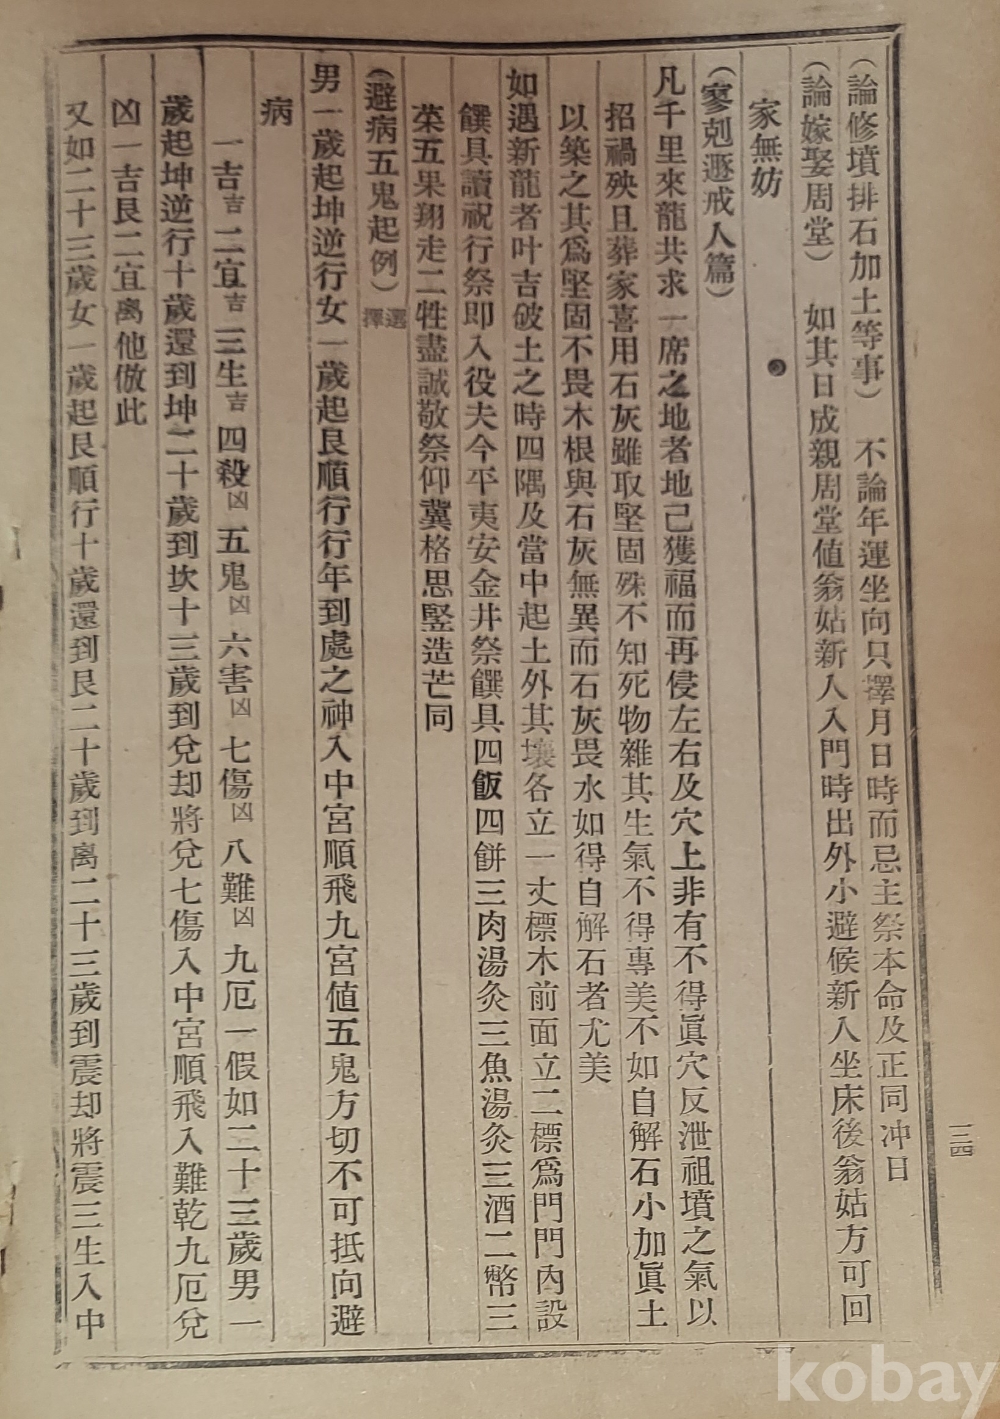 (論修墳排石加土等事) 不論年運坐向只擇月日時而忌主祭本命及正同冲日
(論嫁娶周堂) 如其日成親周堂値翁姑新人入門時出外小避候新人坐床後翁姑方可回
家無妨
(寥剋遯戒人篇)
凡千里來龍共求一席之地者地己獲福而再侵左右及穴上非有不得眞穴反泄祖墳之氣以
招禍殃且葬家喜用石灰雖取堅固殊不知死物雜其生氣不得專美不如自解石小加眞土
以築之其爲堅固不畏木根與石灰無異而石灰畏水如得自解石者尤美
如遇新龍者叶吉破土之時四隅及當中起土外其壤各立一丈標木前面立二標爲門門內設
饌具讀祝行祭即入役夫今平夷安金井祭饌具四飯四餠三肉湯灸三魚湯灸三酒二幣三
菜五果翔走二牲盡誠敬祭仰冀格思竪造芒同
(避病五鬼起例) 選擇
男一歲起坤逆行女一歲起艮順行行年到處之神入中宮順飛九宮値五鬼方切不可抵向避
病
一吉吉二宜吉三生吉四殺凶五鬼凶六害凶七傷凶八難凶九厄一假如二十三歲男一
歲起坤逆行十歲還到坤二十歲到坎十三歲到兌却將兌七傷入中宮順飛入難乾九厄兌
凶一吉艮二宜離他倣此
又如二十三歲女一歲起艮順行十歲還到艮二十歲到离二十三歲到震却將震三生入中
三四
kobay